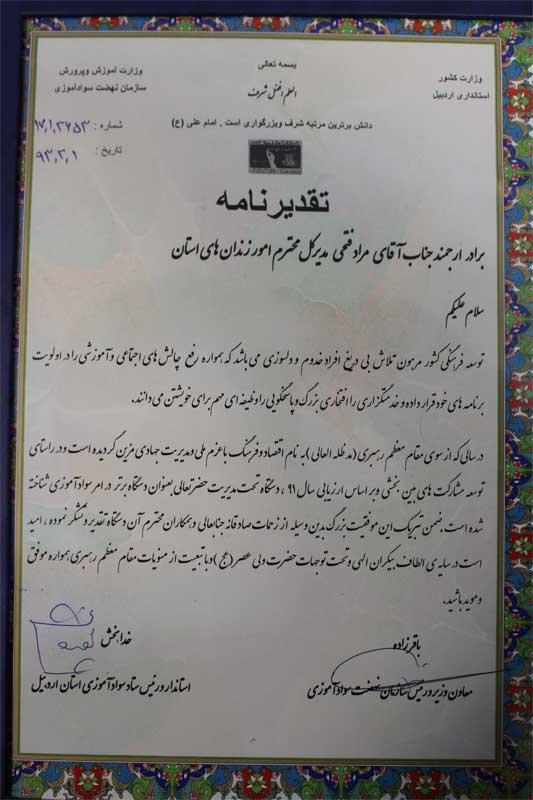 بسمه تعالی
وزارت کشور
استانداری اردبیل
العلم افضل شرف
وزارت آموزش وپرورش
سازمان نهضت سوادآموزی
دانش برترین مرتبه شرف وبزرگواری است . امام علی (ع)
شماره : ۱۷،۱،۲۶۵۳
تاریخ : ۹۳،۲،۱
تقدیرنامه
برادر ارجمند جناب آقای مراد فتحی مدیرکل محترم امور زندان های استان
سلام علیکم
توسعه فرهنگی کشور مرهون تلاش بی دریغ افراد خدوم و دلسوزی می باشد که همواره رفع چالش های اجتماعی و آموزشی را در اولویت
برنامه های خود قرار داده و خدمتگزاری را افتخاری بزرگ و پاسخگویی را وظیفه ای مهم برای خویشتن می دانند.
در سالی که از سوی مقام معظم رهبری (مد ظله العالی) به نام اقتصاد و فرهنگ با عزم ملی و مدیریت جهادی مزین گردیده است و در راستای
توسعه مشارکت های بین بخشی و بر اساس ارزیابی سال ۹۱ ، دستگاه تحت مدیریت حضرتعالی بعنوان دستگاه برتر در امر سوادآموزی شناخته
شده است. ضمن تبریک این موفقیت بزرگ بدین وسیله از زحمات صادقانه جنابعالی و همکاران محترم آن دستگاه تقدیر و تشکر نموده ، امید
است در سایه ی الطاف بیکران الهی و تحت توجهات حضرت ولی عصر (عج) و با تبعیت از منویات مقام معظم رهبری همواره موفق
و موید باشید.
باقرزاده
معاون وزیر و رییس سازمان نهضت سوادآموزی
خدابخش
استاندار و رئیس ستاد سوادآموزی استان اردبیل